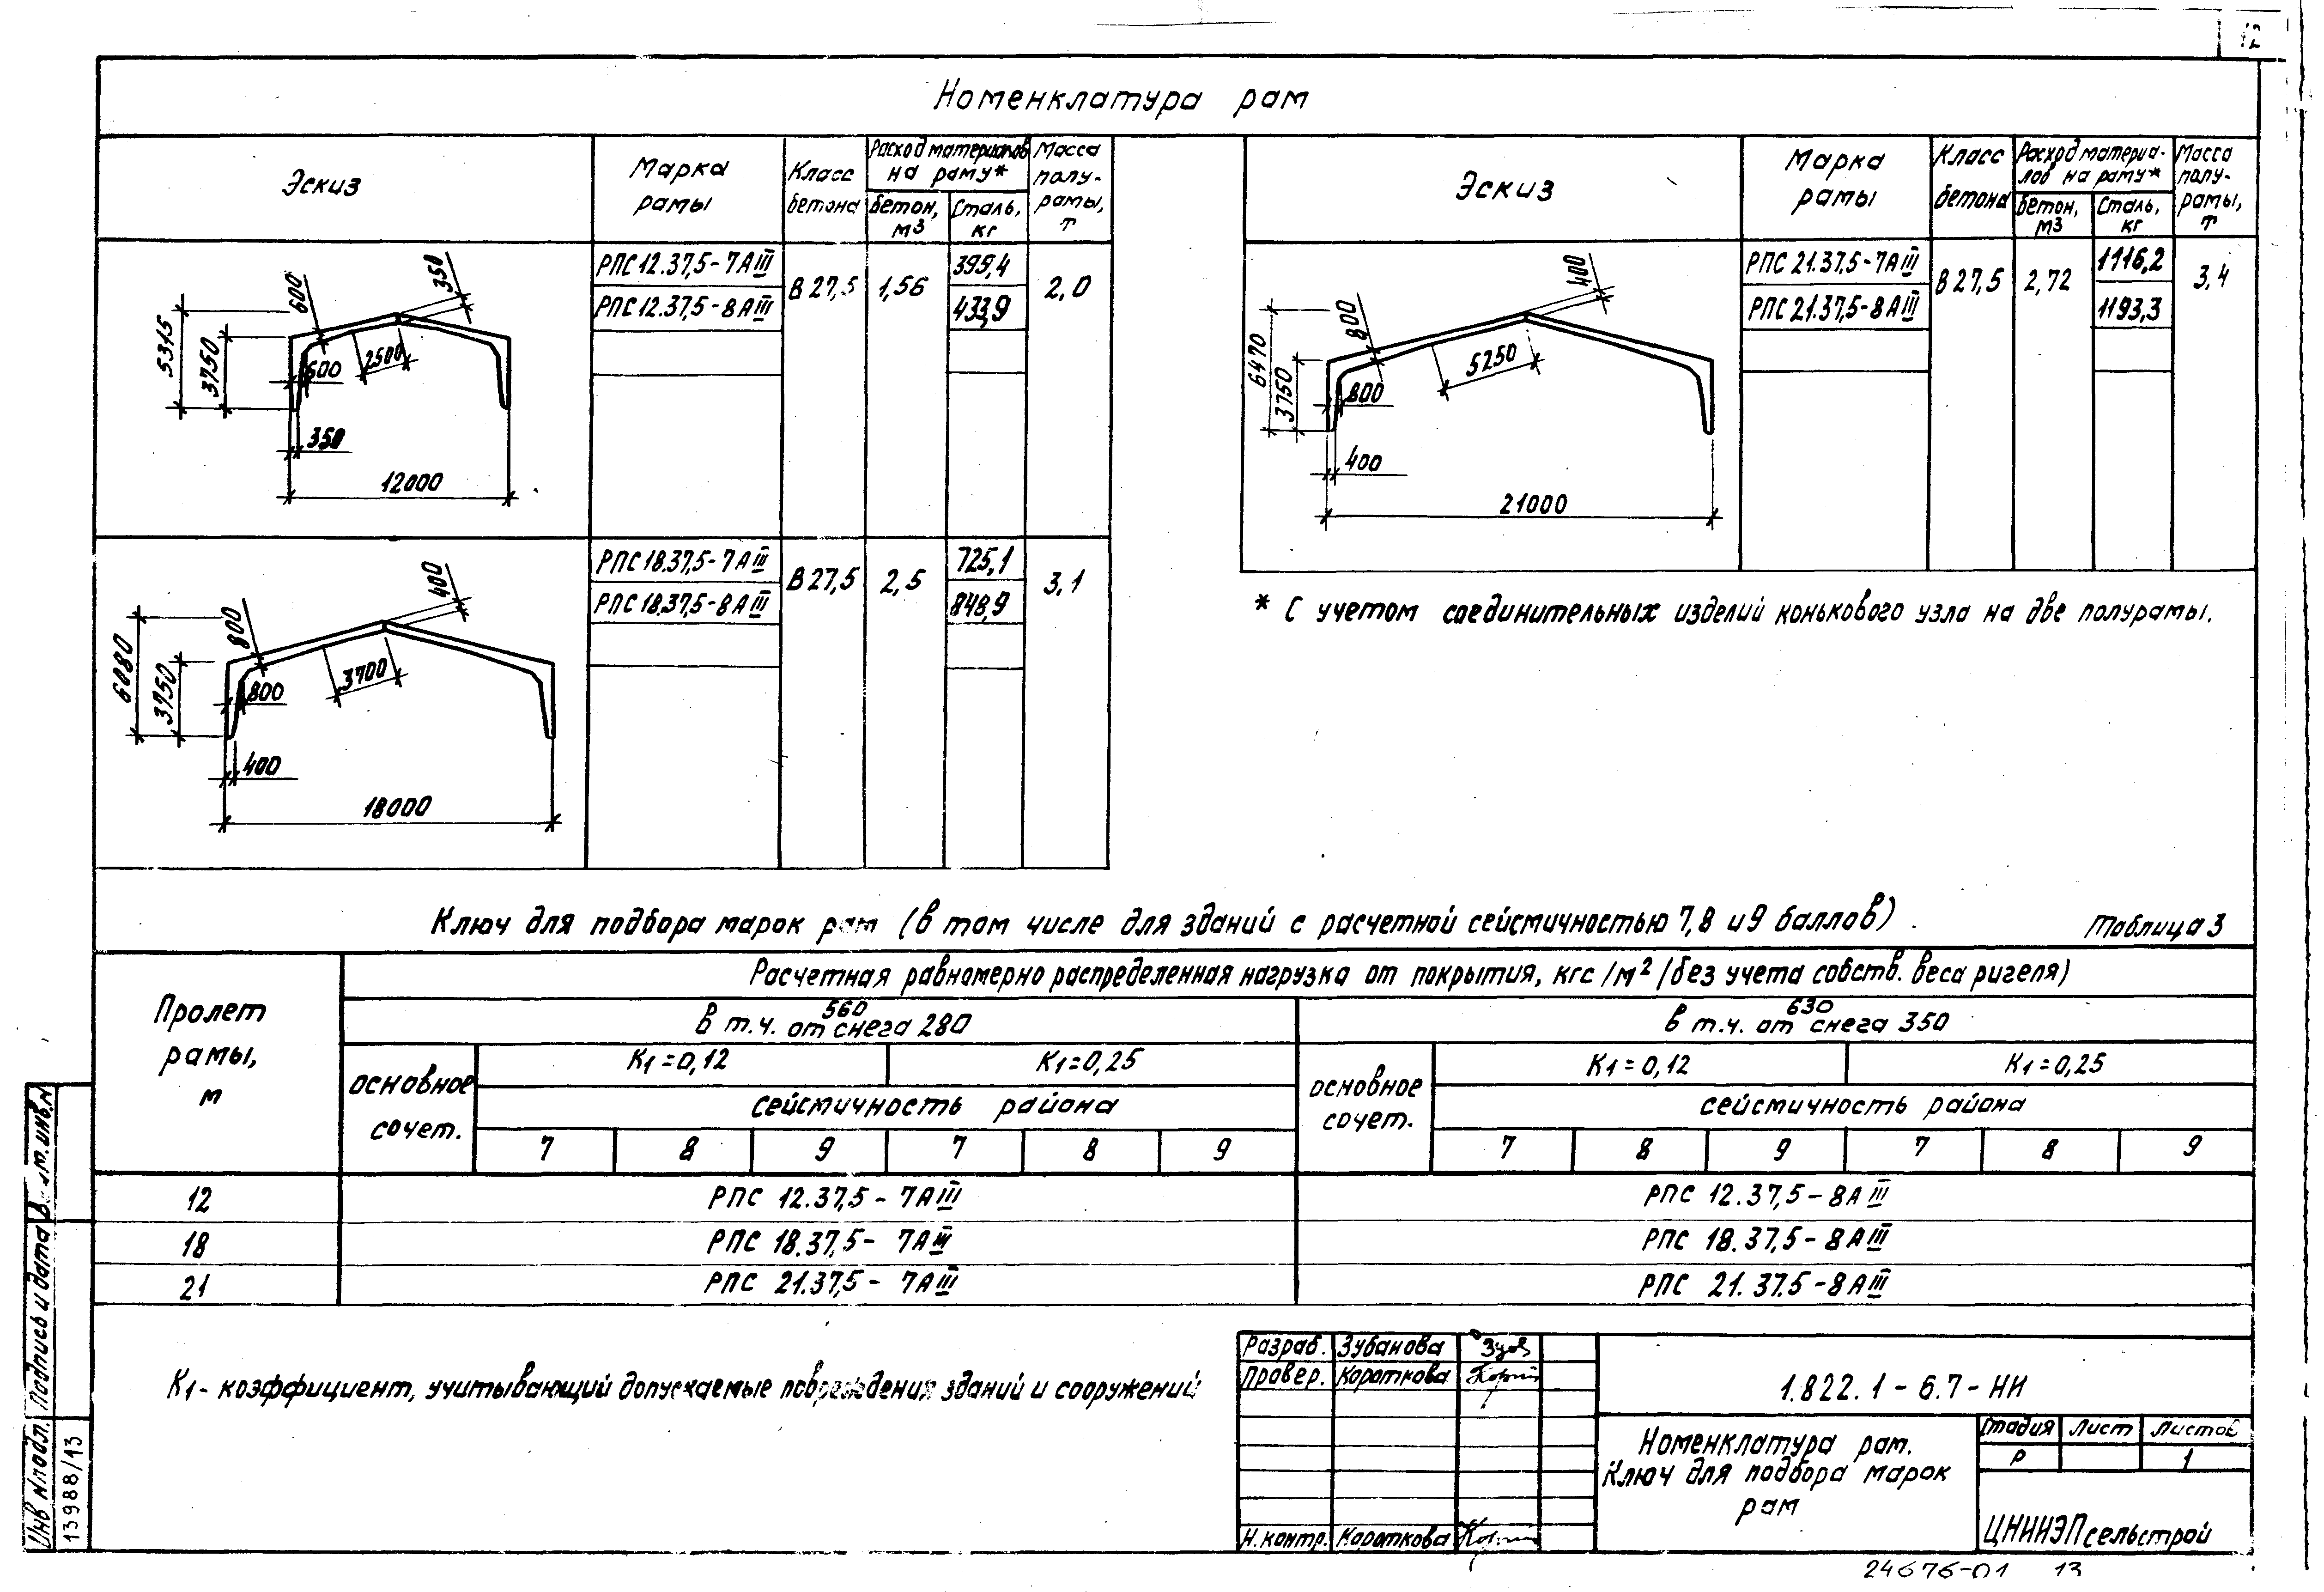 12
Номенклатура рам
Эскиз
Марка рамы
Класс бетона
Расход материалов на раму*
бетон, м3
Сталь, кг
Масса полу-рамы, т
5315
3750
600
350
600
2500
350
12000
РПС 12.37,5-7АIII
РПС 12.37,5-8АIII
В 27,5
1,56
399,4
433,9
2,0
6080
3750
800
400
800
3700
400
18000
РПС 18.37,5-7АIII
РПС 18.37,5-8АIII
В 27,5
2,5
725,1
848,9
3,1
Эскиз
Марка рамы
Класс бетона
Расход материа-лов на раму*
бетон, м3
Сталь, кг
Масса полу-рамы, т
6470
3750
800
400
800
5250
400
21000
РПС 21.37,5-7АIII
РПС 21.37,5-8АIII
В 27,5
2,72
1116,2
1193,3
3,4
* С учетом соединительных изделий конькового узла на две полурамы.
Ключ для подбора марок рам (в том числе для зданий с расчетной сейсмичностью 7,8 и 9 баллов)
Таблица 3
Пролет рамы, м
Расчетная равномерно распределенная нагрузка от покрытия, кгс/м2 /без учета собств. веса ригеля)
560
в т.ч. от снега 280
630
в т.ч. от снега 350
основное сочет.
К1=0,12
К1=0,25
основное сочет.
К1=0,12
К1=0,25
сейсмичность района
сейсмичность района
7 8 9 7 8 9
7 8 9 7 8 9
12 РПС 12.37,5-7АIII РПС 12.37,5-8АIII
18 РПС 18.37,5-7АIII РПС 18.37,5-8АIII
21 РПС 21.37,5-7АIII РПС 21.37.5-8АIII
К1-коэффициент, учитывающий допускаемые повреждения зданий и сооружений
Разраб. Зубанова
Провер. Короткова
Н.контр. Короткова
1.822.1-6.7-НИ
Номенклатура рам.
Ключ для подбора марок рам
Стадия Лист Листов
Р 1
ЦНИИЭПсельстрой
24676-01 13
Инв Nподл.
Подпись и дата
13988/13